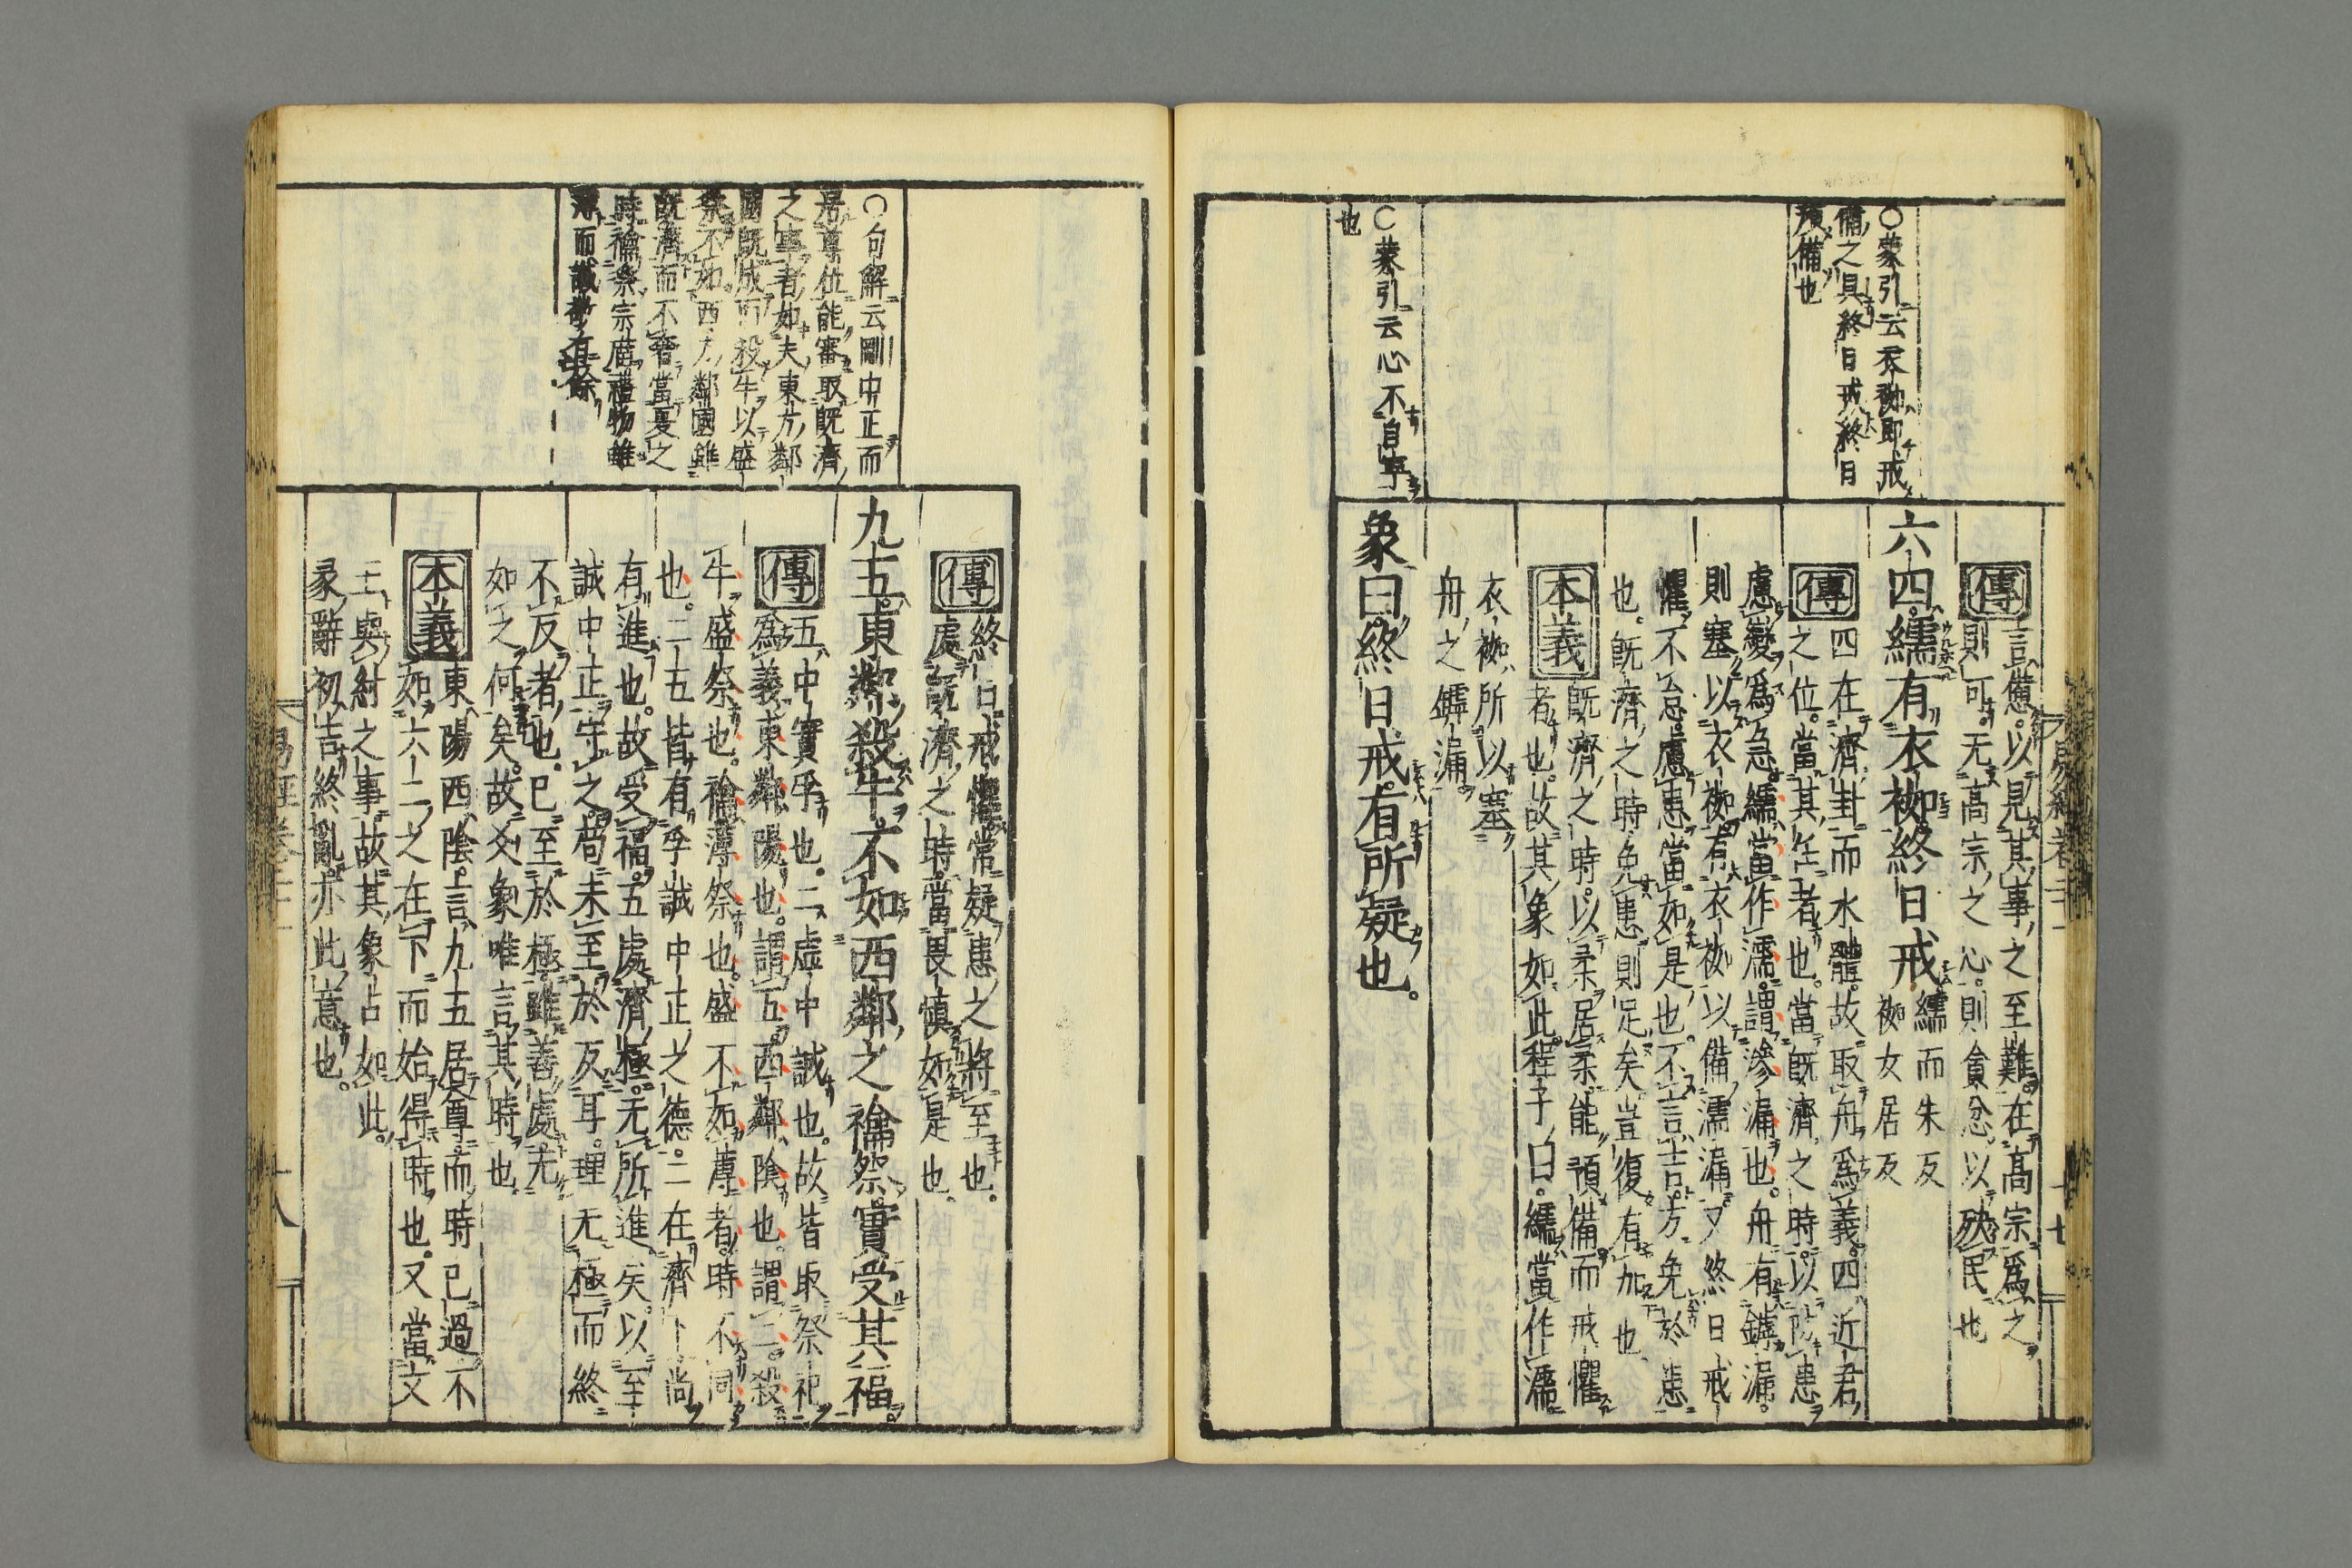 ○蒙引云衣袽即戒
備之具終日戒終日
預備也
○蒙引云心不自寧
也
傳
言憊以見其事之至難在高宗爲之
則可无高宗之心則貪忿以殃民也
六四繻有衣袽終日戒
繻而朱反
袽女居反
傳
四在濟卦而水體故取舟爲義四近君
之位當其任者也當既濟之時以防患
慮變爲急繻當作濡謂滲漏也舟有罅漏
則塞以衣袽有衣袽以備濡漏又終日戒
懼不怠慮患當如是也不言吉方免於患
也既濟之時免患則足矣豈復有加也
本義
既濟之時以柔居柔能預備而戒懼
者也故其象如此程子曰繻當作濡
衣袽所以塞
舟之罅漏
象曰終日戒有所疑也
○句解云剛中正而
居尊位能審取既濟
之事者如夫東方鄰
國既成而殺牛以盛
祭不如西方鄰國雖
既濟而不奢當夏之
時禴祭宗廟禮物雖
薄而誠敬有餘
傳
終日戒懼常疑患之將至也
處既濟之時當畏慎如是也
九五東鄰殺牛不如西鄰之禴祭實受其福
傳
五中實孚也二虛中誠也故皆取祭祀
爲義東鄰陽也謂五西鄰陰也謂二殺
牛盛祭也禴薄祭也盛不如薄者時不同
也二五皆有孚誠中正之德二在濟下尚
有進也故受福五處濟極无所進矣以至
誠中正守之苟未至於反耳理无極而終
不反者也已至於極雖善處无
如之何矣故爻象唯言其時也
本義
東陽西陰言九五居尊而時已過不
如六二之在下而始得時也又當文
王與紂之事故其象占如此
彖辭初吉終亂亦此意也